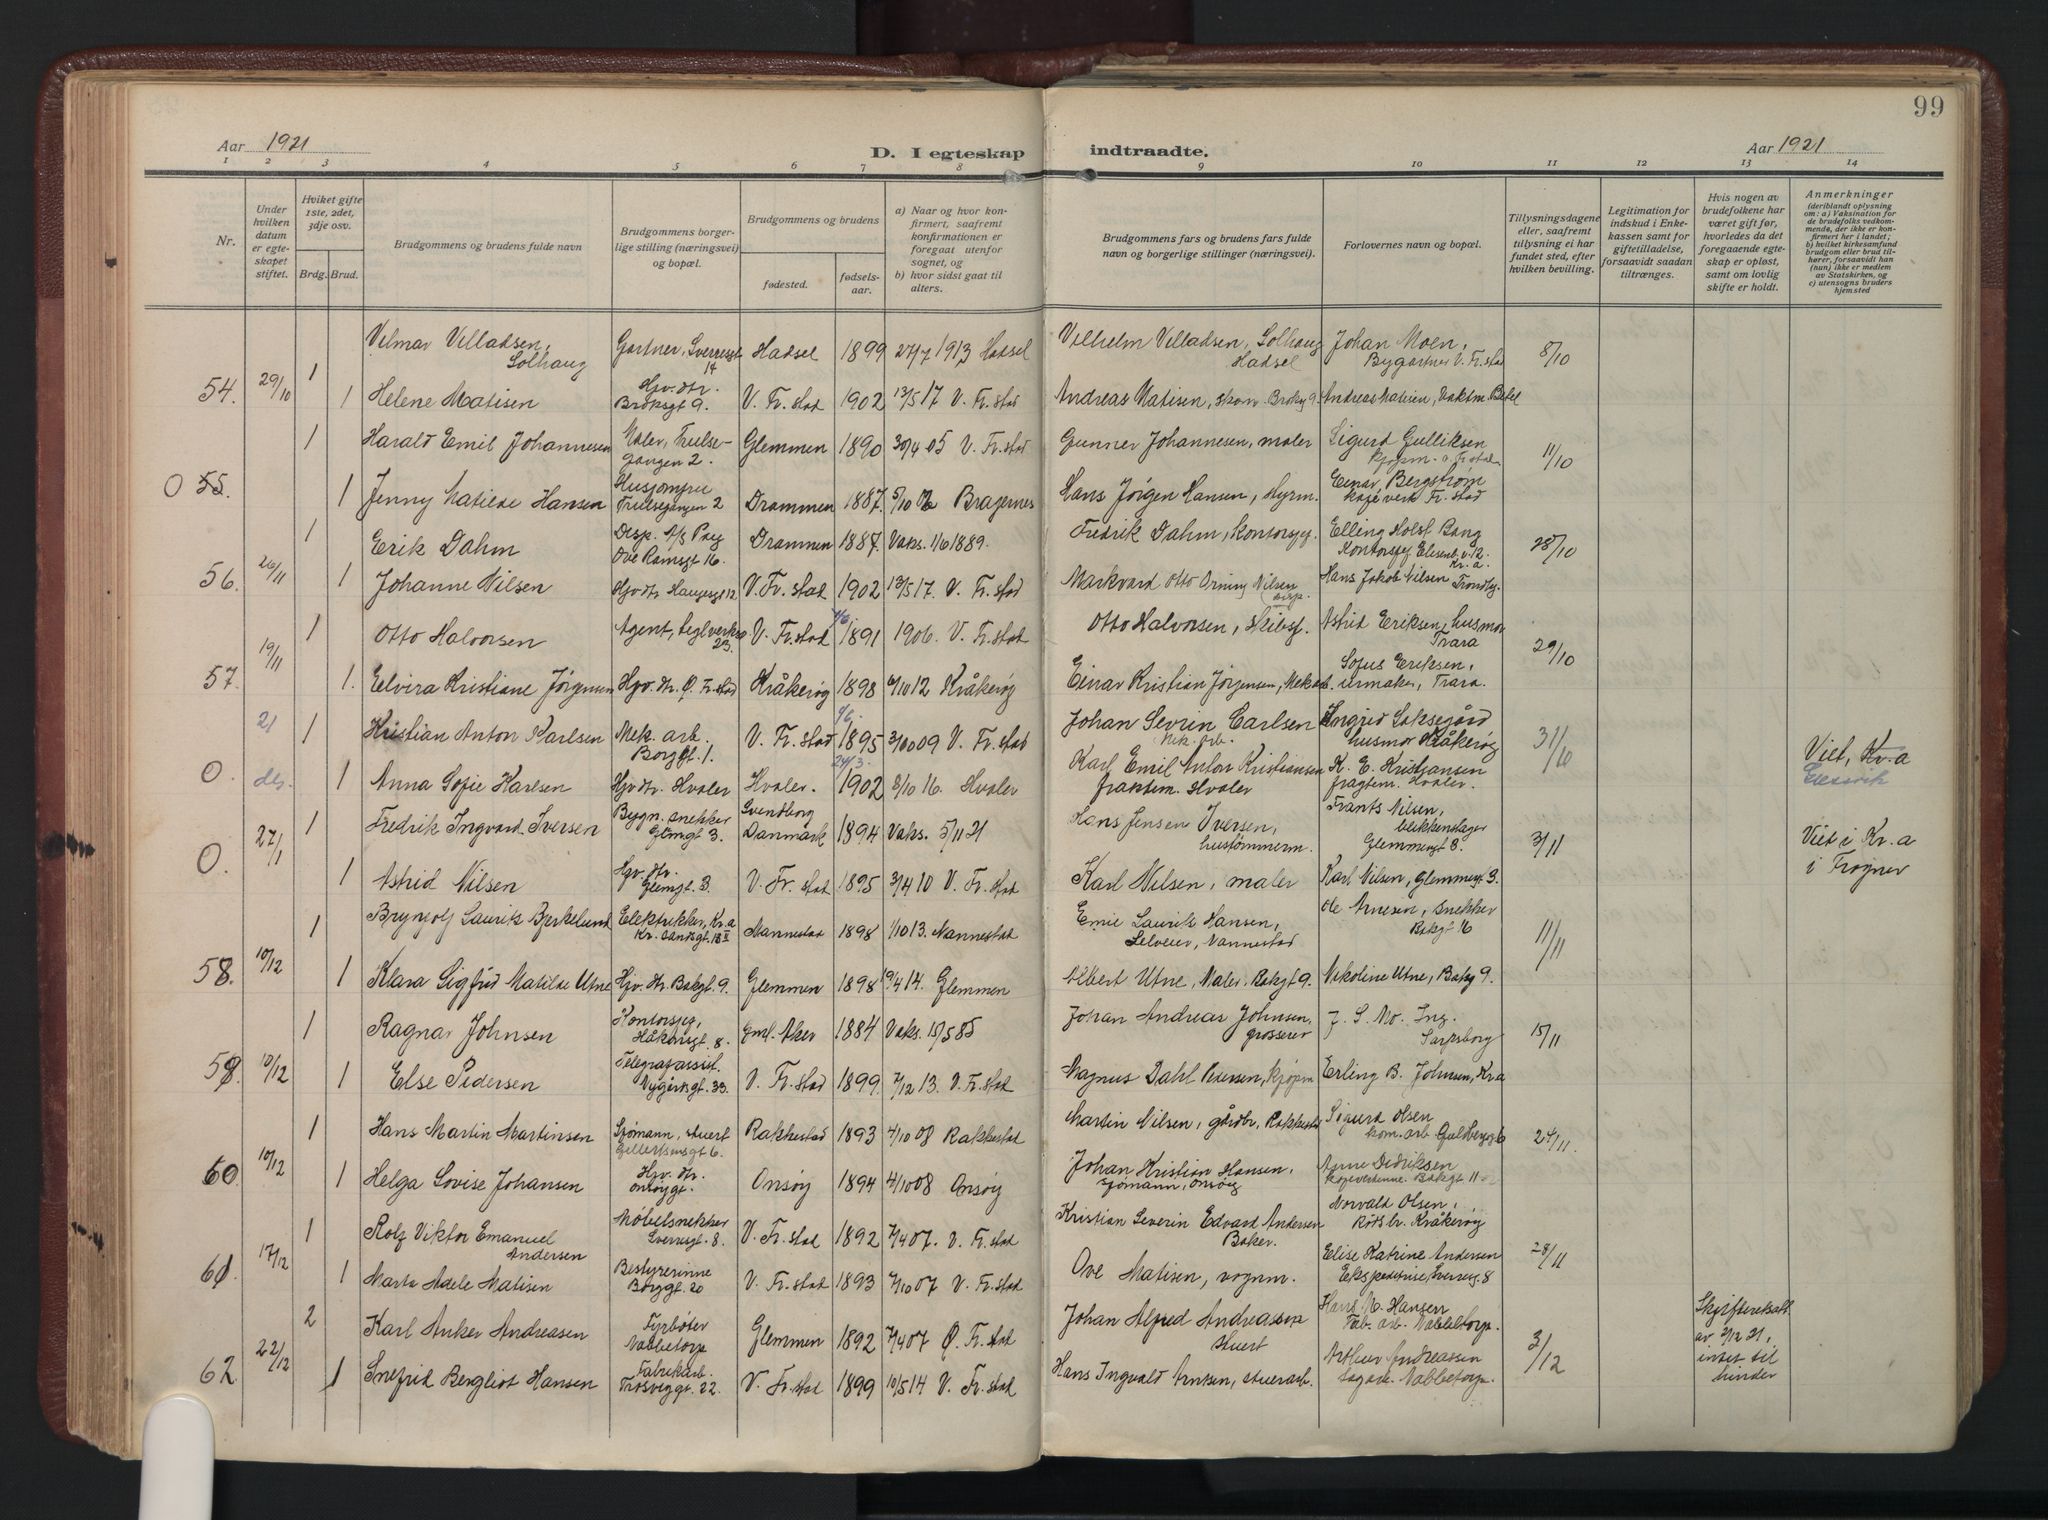 99
Aar 1921
D. I egteskap indtraadte.
Aar 1921
1 2 3 4 5 6 7 8 9 10 11 12 13 14
Nr.
Under hvilken datum er egte-skapet stiftet.
Hviket gifte 1ste, 2det, 3dje osv.
Brdg. Brud.
Brudgommens og brudens fulde navn
Brudgommens borger-lige stilling (næringsvei) og bopæl.
Brudgommens og brudens
fødested.
fødsels-aar.
a) Naar og hvor kon-firmert, saafremt konfirmationen er foregaat utenfor sognet, og
b) hvor sidst gaat til alters.
Brudgommens fars og brudens fars fulde navn og borgerlige stillinger (næringsvei).
Forlovernes navn og bopæl.
Tillysningsdagene eller, saafremt tillysning ei har fundet sted, efter hvilken bevilling.
Legitimation for indskud i Enke-kassen samt for giftetilladelse, forsaavidt saadan tiltrænges.
Hvis nogen av brudefolkene har været gift før, hvorledes da det foregaaende egte-skap er opløst, samt om lovlig skifte er holdt.
Anmerkninger
(deriblandt oplysning om: a) Vaksination for de brudefolks vedkom-mende, der ikke er kon-firmert her i landet; b) hvilket kirkesamfund brudgom eller brud til-hører, forsaavidt han (hun) ikke er medlem av Statskirken, og c) utensogns bruders hjemsted
1 Vilmar Villadsen, Solhaug Gartner, Sverresgt 14 Hadsel 1899 27/7 1913 Hadsel Vilhelm Villadsen, Solhaug Hadsel Johan Moen, Bygartner V. Fr.stad 8/10
54. 29/10 1 Helene Matisen Hjv. dtr. Broksgt 9. V. Fr. stad 1902 13/5 17 V. Fr. stad Andreas Matisen, Brokg 9. Andreas Matisen, Vaktm.
1 Harald Emil Johannesen Maler, Trulse-gangen 2. Glemmen 1890 30/4 05 V. Fr. stad Gunner Johannesen, maler Sigurd Gulliksen kjøpm. V. Fr stad 11/10
O 55. 1 Jenny Matilde Hansen Husjomfru Trulsegangen 2 Drammen 1887. 5/10 02 Bragernes Hans Jörgen Hansen, Styrm. Einar Bergstrøm Fr. stad
1 Erik Dahm Disp. A/S Ove Ramsgt 16. Drammen 1887. Vaks. 1/6 1889. Fredrik Dahm, Kontorsjef. Elling Holst Bang Kontorsjef Kr. a. 28/10
56. 26/11 1 Johanne Nilsen Hjv dtr Haugesgt 12 V. Fr. stad 1902 13/5 17. V. Fr. stad Markvard Otto Orning Nilsen disp. Hans Jakob Nilsen
1 Otto Halvorsen Agent, Teglverksg 23. V. Fr. stad 1891 1906. V. Fr. stad Otto Halvorsen, Skibsf. Astrid Eriksen, husmor Trara 29/10
57. 19/11 1. Elvira Kristiane Jörgensen Hjv. dtr. Ø. Fr. stad Kråkerøy 1898 /10 12 Kråkerøy Einar Kristian Jörgensen, Mek arb. Sofus Eriksen, urmaker, Trara.
21 1 Kristian Anton Karlsen Mek. arb. Borggt. 1. V. Fr. stad 1895 3/10 09 V. Fr. stad Johan Sevrin Carlsen Mek. arb. Ingrid husmor Kråkerøy 31/10
O. 1 Anna Sofie Karlsen Hjv dtr. Hvaler Hvaler. 24/3. 1902 8/10 16. Hvaler Karl Emil Anton Kristiansen fraktem. Hvaler K. E. Kristiansen fragtem. Hvaler. Viet, Kr.a
1 Fredrik Ingvard Iversen Bygn. snekker Glemgt 3. Svendborg Danmark 1894 Vaks. 5/11 21 Hans Jensen Iversen, hustømmerm. Frants Nilsen, blikkenslager Glemmengt 8. 3/11 Viet i Kr. a i Frogner
O. 27/1 1 Astrid Nilsen Hjv. dtr. Glemgt. 3. V. Fr. stad 1895 3/4 10 V. Fr. stad Karl Nilsen, maler Karl Nilsen, Glemmengt 3.
1 Brynjolf Laurik Bjerkelund Elektrikker, Kr.a Nannestad 1898 1/10 13. Nannestad Emil Laurik Hansen, Selveier, Nannestad Ole Arnesen, snekker Bakgt 16 11/11
58. 10/12 1 Klara Sigfrid Matilde Utne Hjv. dtr. Bakgt 9. Glemmen 1898 19/4 14. Glemmen Albert Utne, Maler. Bakgt 9. Nikoline Utne, Bakg 9.
1 Ragnar Johnsen Kontorsjef, Håkonsgt. 8. Gml. Aker 1884 Vaks. 15/5 85 Johan Andreas Johnsen, grosserer J. S. Mo. Ing. Sarpsborg 15/11
59. 10/12 1 Else Pedersen Telegrafassist. Nygårsgt. 33. V. Fr. stad 1899. 7/12 13. V. Fr. stad Magnus Dahl Pedersen, kjöpm Erling B. Johnsen, Kr.a
1 Hans Martin Martinsen Sjömann, stuert 6. Rakkestad 1893 4/10 08 Rakkestad Martin Nilsen, gårdbr, Rakkestad Sigurd Olsen kom. arb. Guldbergg 6 24/11.
60. 10/12 1 Helga Lovise Johansen Hjv. dtr. Onsøygt. Onsøy 1894 4/10 08 Onsøy Johan Kristian Hansen, sjømann, Onsøy Anne Didriksen Bakgt 11
1 Rolf Viktor Emanuel Andersen Møbelsnekker Sverresgt. 8. V. Fr. stad 1892 7/4 07. V. Fr. stad Kristian Severin Edvard Andersen Baker. Norvald Olsen, Kråkerøy 28/11
61. 17/12 1 Marta Adele Matisen Bestyrerinne Borggt. 20 V. Fr. stad 1893 7/10 07 V. Fr. stad Ove Matisen, vognm. Elise Katrine Andersen Ekspeditrise, Sverresg. 8
2 Karl Anker Andreasen Fyrbøter Nabbetorp Glemmen 1892 7/4 07 Ø. Fr. stad Johan Alfred Andreassen Stuert Hans M. Hansen Fab. arb. Nabbetorp. 3/12 Skifteretsatt. av 2/12 21, intet til hinder
62. 22/12 1 Snefrid Bergliot Hansen Fabrikarb. Trosviggt. 22. V. Fr. stad 1899 10/5 14 V. Fr. stad Hans Ingvald Arntsen, stuerarb. Arthur Andreassen Sagarb. Nabbetorp.